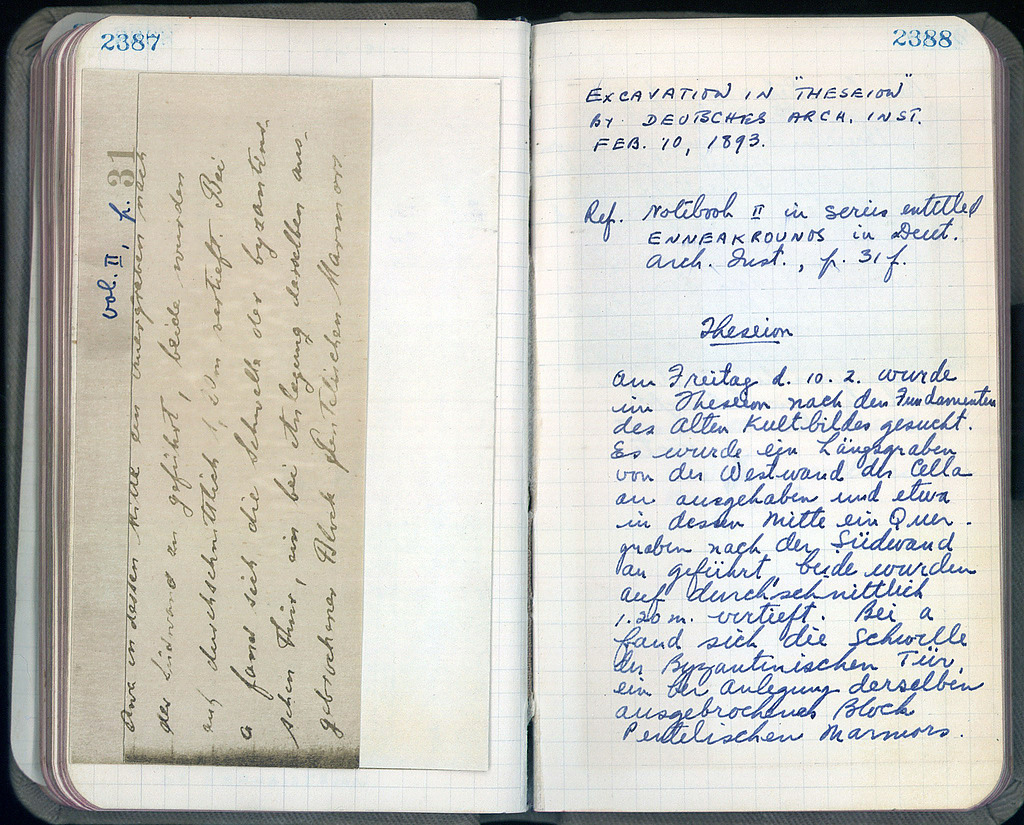 2387
vol. II, p. 31
etwa in dessen Mitte ein Quergraben nach
der Südwand an geführt, beide wurden
auf durchschnittlich vertieft. Bei
a fand sich die Schwelle der byzantini-
schen Thür, ein bei Anlegung derselben aus-
gebrochener Block pentelischen Marmors
2388
EXCAVATION IN "THESEION"
BY DEUTSCHES ARCH. INST.
FEB. 10, 1893.
Ref. Notebook II in series entitled
ENNEAKROUNOS in Deut.
Arch. Inst., p. 31 f.
Theseion
Am Freitag d. 10. 2. wurde
im Theseion nach den Fundamenten
des alten Kultbildes gesucht.
Es wurde ein Längsgraben
von der Westwand der Cella
an ausgehaben und etwa
in dessen Mitte ein Quer-
graben nach der Südwand
an geführt, beide wurden
auf durchschnittlich
1.20 m. vertieft. Bei a
fand sich die Schwelle
der Byzantinischen Tür,
ein bei Anlegung derselben
ausgebrochener Block
Pentelischen Marmors.